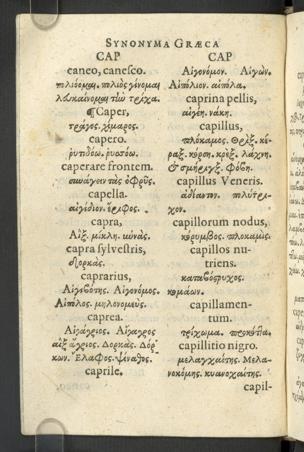 SYNONYMA GRÆCA
CAP
caneo, canesco.
πολιόομαι. πολιὸς γίνομαι
λευκαίνομαι τὴν τρίχα.
¶Caper,
τράγος. χίμαρος.
capero.
ῥυτιδόω. ῥυσόω.
caperare frontem.
συνάγειν τὰς ὀφρῦς.
capella.
αἰγίδιον. ἔριφος.
capra,
Αἴξ.
capra sylvestris,
δορκάς.
caprarius,
Αἰγιβότης. Αἰγονόμος.
Αἰπόλος. μηλονομεύς.
caprea.
Αἴγαγρος
αἲξ ἄγριος. Δορκὰς. Δόρ
κων. Ἔλαφος.
caprile.
CAP
Αἰγονόμιον. Αἰγών.
Αἰπόλιον. αἰπόλα.
caprina pellis,
αἰγέη. νάκη.
capillus,
πλόκαμος. Θρίξ. κέ-
ραξ. κόρση. λάχνη.
σμήριγξ. φόβη.
capillus Veneris.
ἀδίαντον. πολύτρι-
χον.
capillorum nodus,
κόρυμβος. πλοκαμὶς.
capillos nu-
triens.
κατάβόστρυχος.
κομάων.
capillamen-
tum.
τρίχωμα.
capillitio nigro.
μελαγχαίτης. Μελα-
νοκόμης. κυανοχαίτης.
capil-